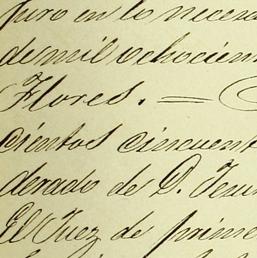 juro en lo necesa
de mil ochocien
Flores. =
cientos cincuent
derado de D.
El Juez de prime